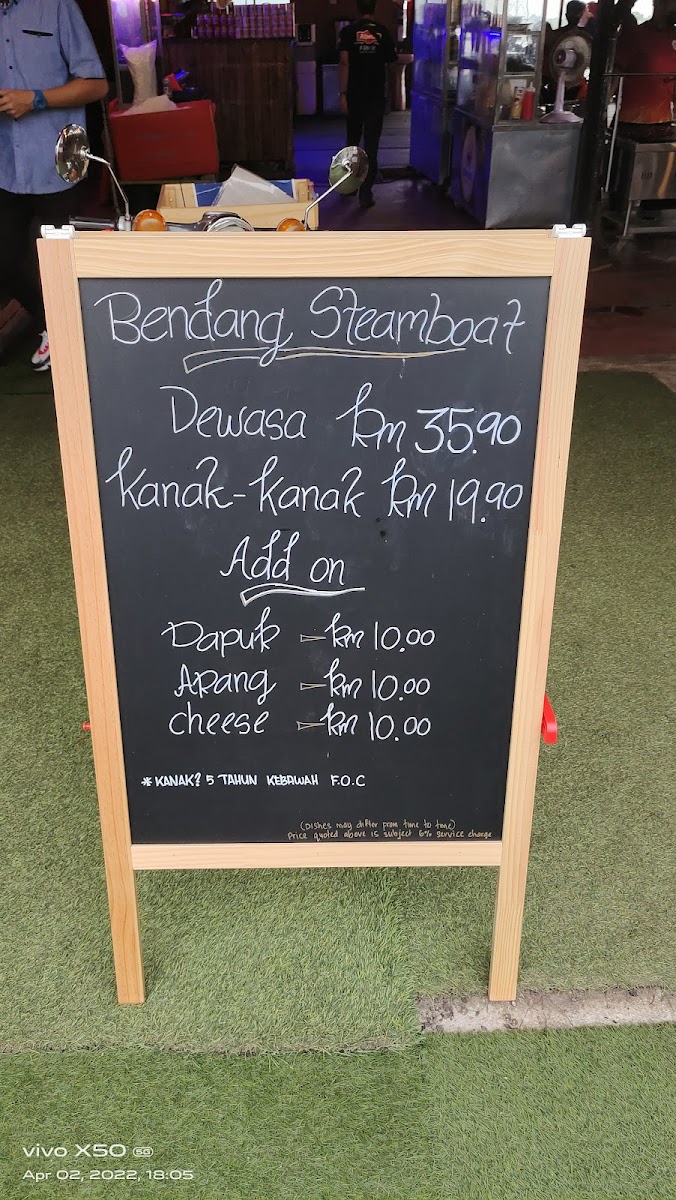 Bendang Steamboat
Dewasa Rm 35.90
Kanak-Kanak Rm 19.90
Add on
Dapur - Rm 10.00
Arang - Rm 10.00
cheese - Rm 10.00
* KANAK² 5 TAHUN KEBAWAH F.O.C
(Dishes may differ from time to time)
Price quoted above is subject 6% service charge
vivo X50 5G
Apr 02, 2022, 18:05